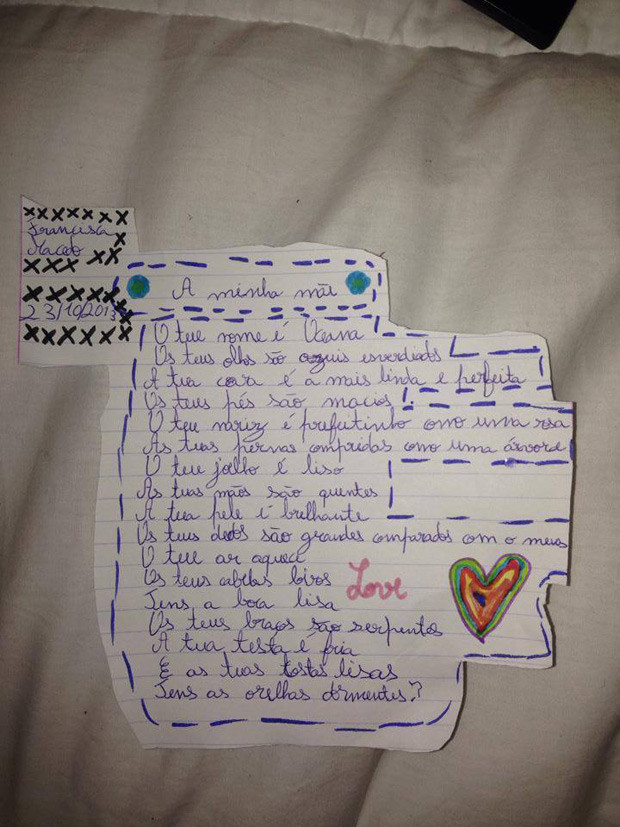 Francisca
Macedo
23/10/2013
A minha mãe
O teu nome é
Os teus olhos são azuis esverdeados
A tua cara é a mais linda e perfeita
Os teus pés são macios
O teu nariz é prefeitinho como uma rosa
As tuas pernas compridas como uma árvore
O teu joelho é liso
As tuas mãos são quentes
A tua pele é brilhante
Os teus dedos são grandes comparados com o meus
O teu ar aquece
Os teus cabelos loiros
Love
Tens a boca lisa
Os teus braços são serpentes
A tua testa é fria
E as tuas costas lisas
Tens as orelhas dormentes?